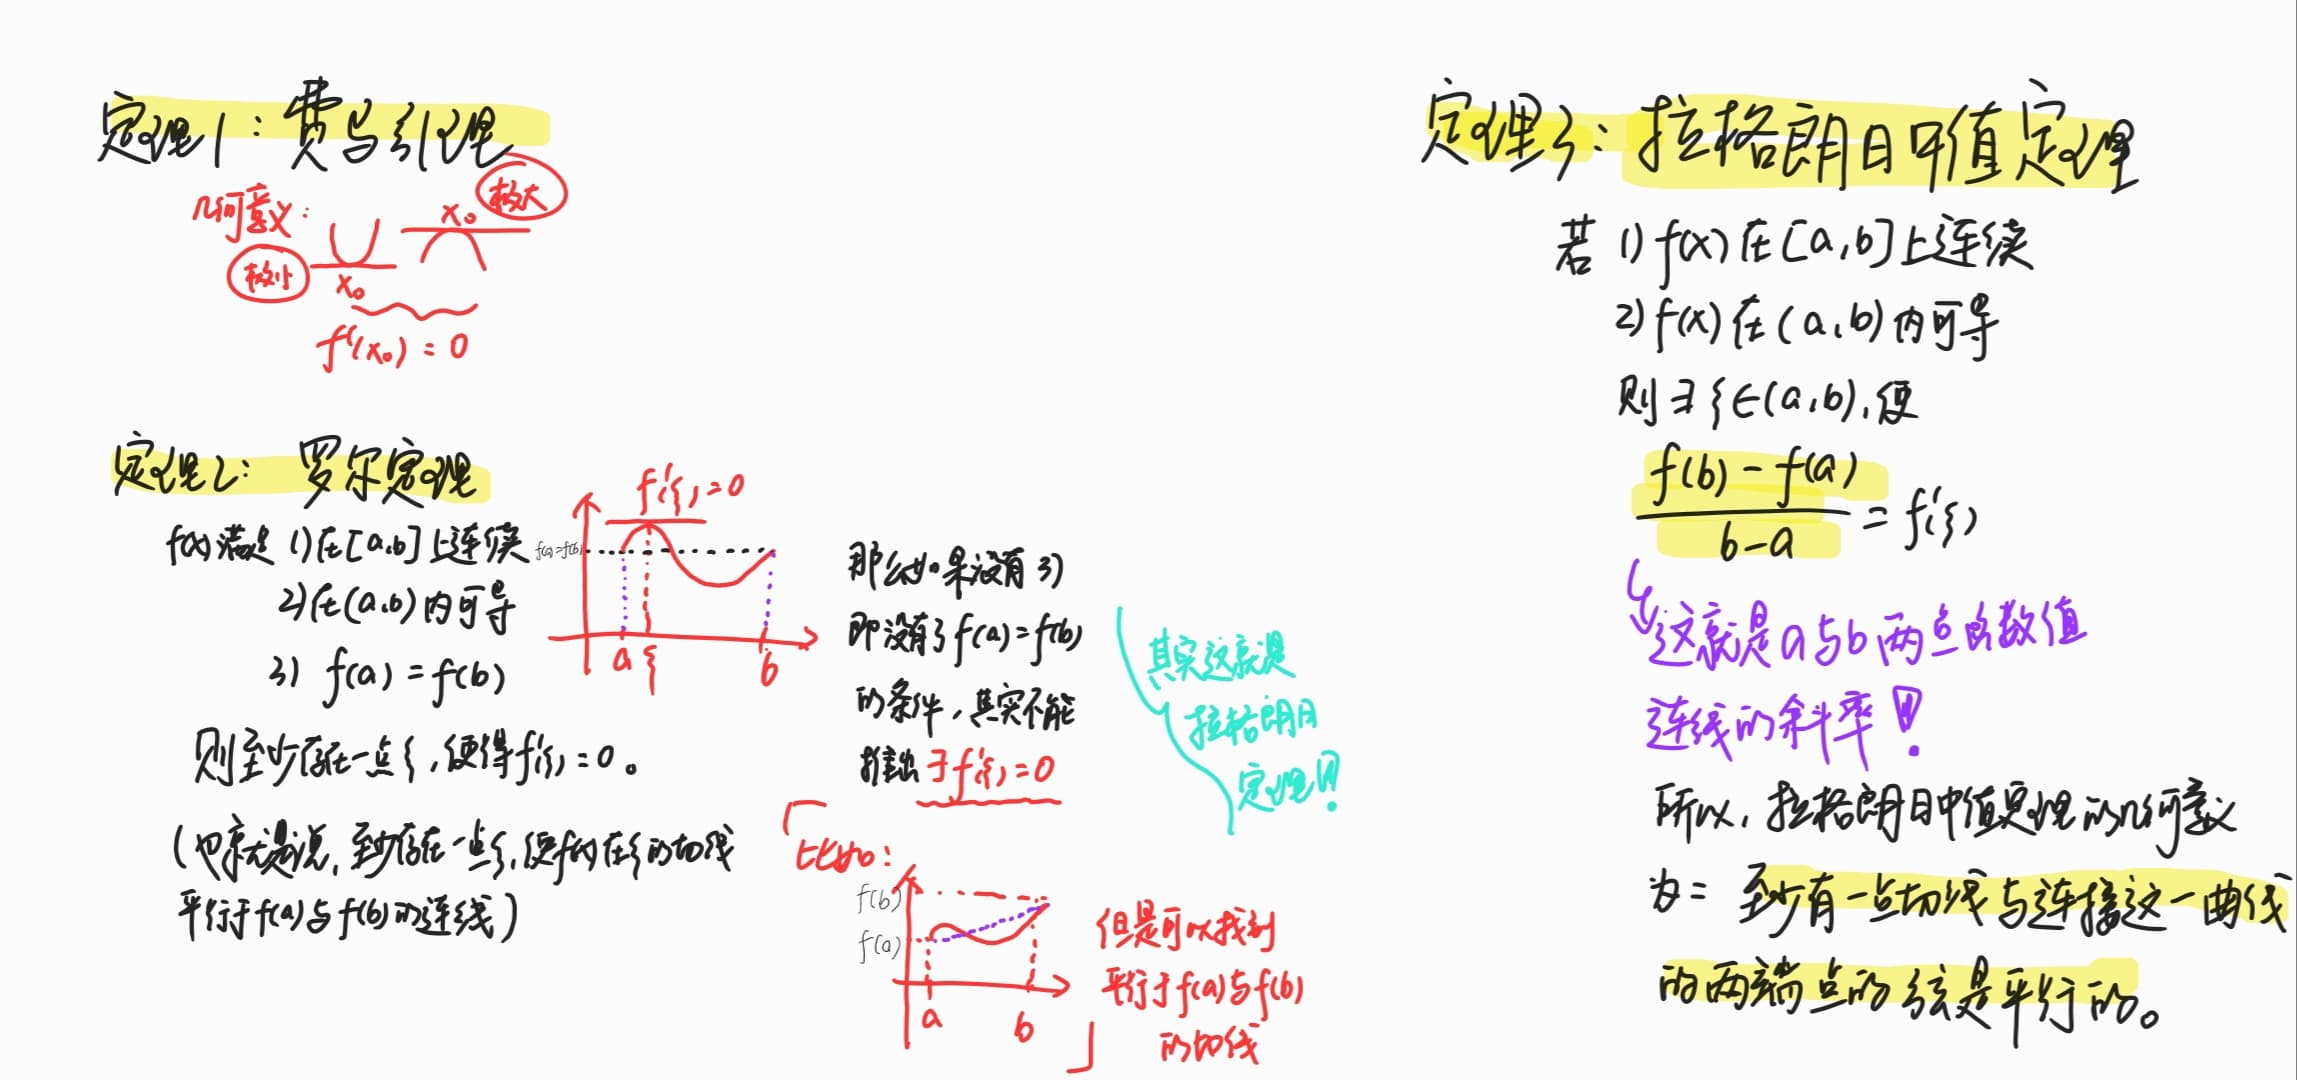 定理1: 费马引理
几何意义:
极小
x₀
x₀
极大
f'(x₀) = 0
定理2: 罗尔定理
f(x)满足 1)在[a,b]上连续
2)在(a,b)内可导
3) f(a) = f(b)
则至少存在一点ξ,使得f'(ξ)=0。
(也就是说,至少存在一点ξ,使f(x)在ξ的切线
平行于f(a)与f(b)的连线)
f'(ξ)=0
f(a)=f(b)
a ξ b
那么如果没有3)
即没有了f(a)=f(b)
的条件,其实不能
推出∃f'(ξ)=0
其实这就是
拉格朗日
定理!
比如:
f(b)
f(a)
a b
但是可以找到
平行于f(a)与f(b)
的切线
定理3: 拉格朗日中值定理
若 1) f(x)在[a,b]上连续
2) f(x)在(a,b)内可导
则∃ξ∈(a,b),使
f(b) - f(a)
b - a
= f'(ξ)
这就是a与b两点函数值
连线的斜率!
所以,拉格朗日中值定理的几何意义
为= 至少有一点切线与连接这一曲线
的两端点的弦是平行的。